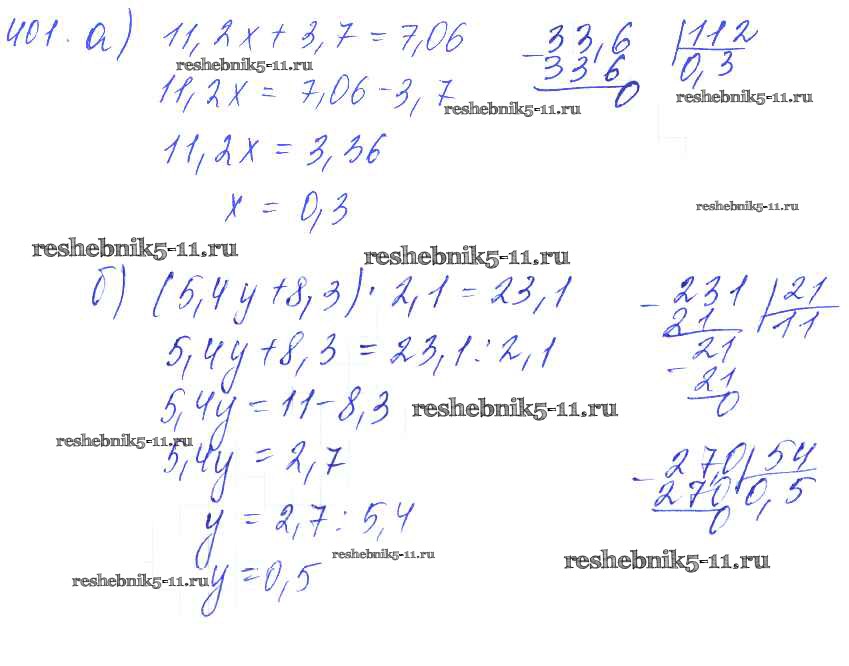 401. а) 11,2x + 3,7 = 7,06
33,6 | 112
reshebnik5-11.ru
- 336
0,3
11,2x = 7,06 - 3,7
0
reshebnik5-11.ru
reshebnik5-11.ru
11,2x = 3,36
x = 0,3
reshebnik5-11.ru
reshebnik5-11.ru
reshebnik5-11.ru
б) (5,4y + 8,3) · 2,1 = 23,1
- 231 | 21
21
11
5,4y + 8,3 = 23,1 : 2,1
21
- 21
0
5,4y = 11 - 8,3
reshebnik5-11.ru
reshebnik5-11.ru
5,4y = 2,7
- 27,0 | 54
270
0,5
0
y = 2,7 : 5,4
reshebnik5-11.ru
reshebnik5-11.ru
reshebnik5-11.ru
y = 0,5